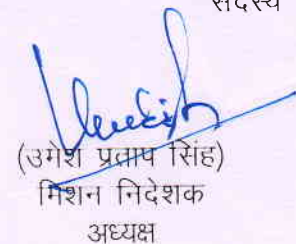 सदस्य
(उमेश प्रताप सिंह)
मिशन निदेशक
अध्यक्ष